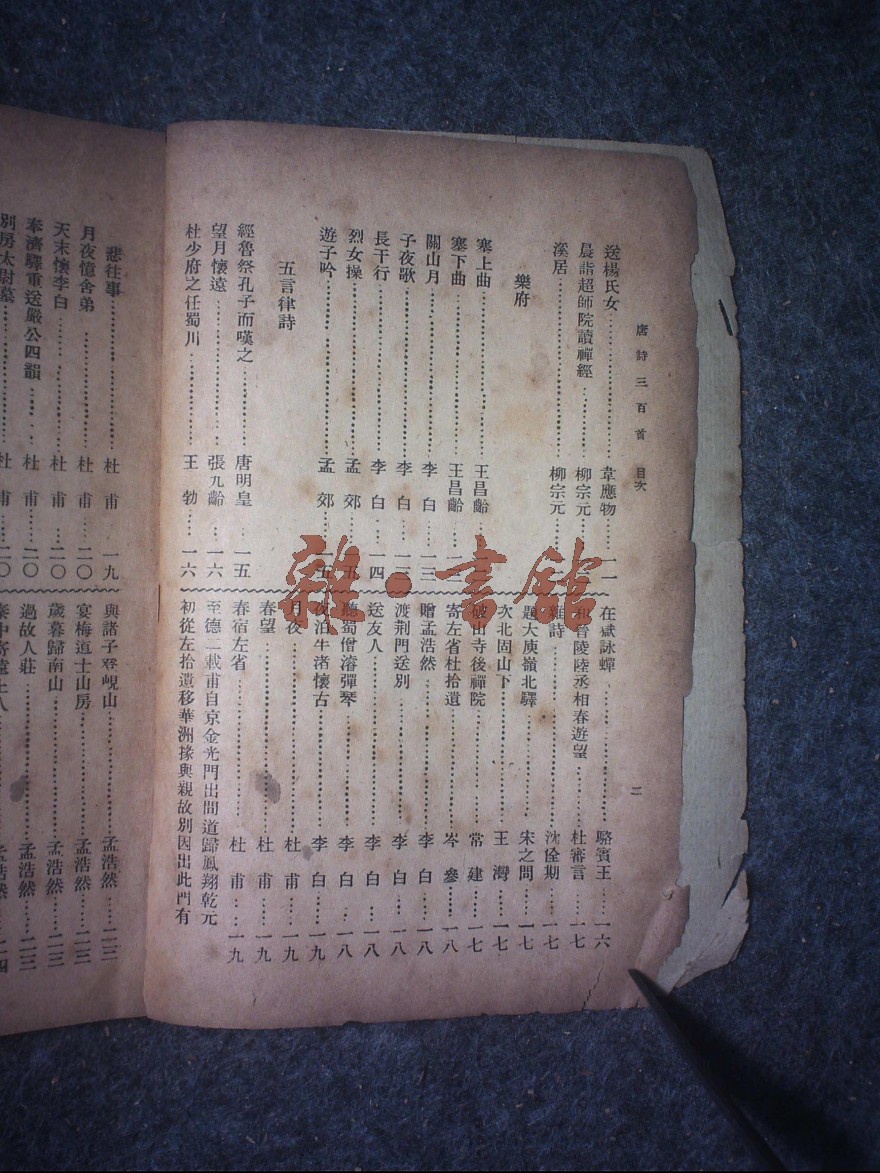 唐詩三百首 目次
二
送楊氏女 韋應物 一一
晨詣超師院讀禪經 柳宗元
溪居 柳宗元
樂府
塞上曲 王昌齡
塞下曲 王昌齡 一三
關山月 李白 一三
子夜歌 李白 一三
長干行 李白 一四
烈女操 孟郊 一五
遊子吟 孟郊 一五
五言律詩
經魯祭孔子而嘆之 唐明皇 一五
望月懷遠 張九齡 一六
杜少府之任蜀川 王勃 一六
在獄詠蟬 駱賓王 一六
和晉陵陸丞相春遊望 杜審言 一七
雜詩 沈佺期 一七
題大庾嶺北驛 宋之問 一七
次北固山下 王灣 一七
破山寺後禪院 常建 一七
寄左省杜拾遺 岑參 一八
贈孟浩然 李白 一八
渡荆門送別 李白 一八
送友人 李白 一八
聽蜀僧濬彈琴 李白 一八
夜泊牛渚懷古 李白 一九
月夜 杜甫 一九
春望 杜甫 一九
春宿左省 杜甫 一九
至德二載甫自京金光門出間道歸鳳翔乾元
初從左拾遺移華洲掾與親故別因出此門有
悲往事 杜甫 一九
月夜憶舍弟 杜甫 二〇
天末懷李白 杜甫 二〇
奉濟驛重送嚴公四韻 杜甫 二〇
別房太尉墓 杜甫 二〇
與諸子登峴山 孟浩然 二三
宴梅道士山房 孟浩然 二三
歲暮歸南山 孟浩然 二三
過故人莊 孟浩然 二三
孟浩然 二四
雜·書館